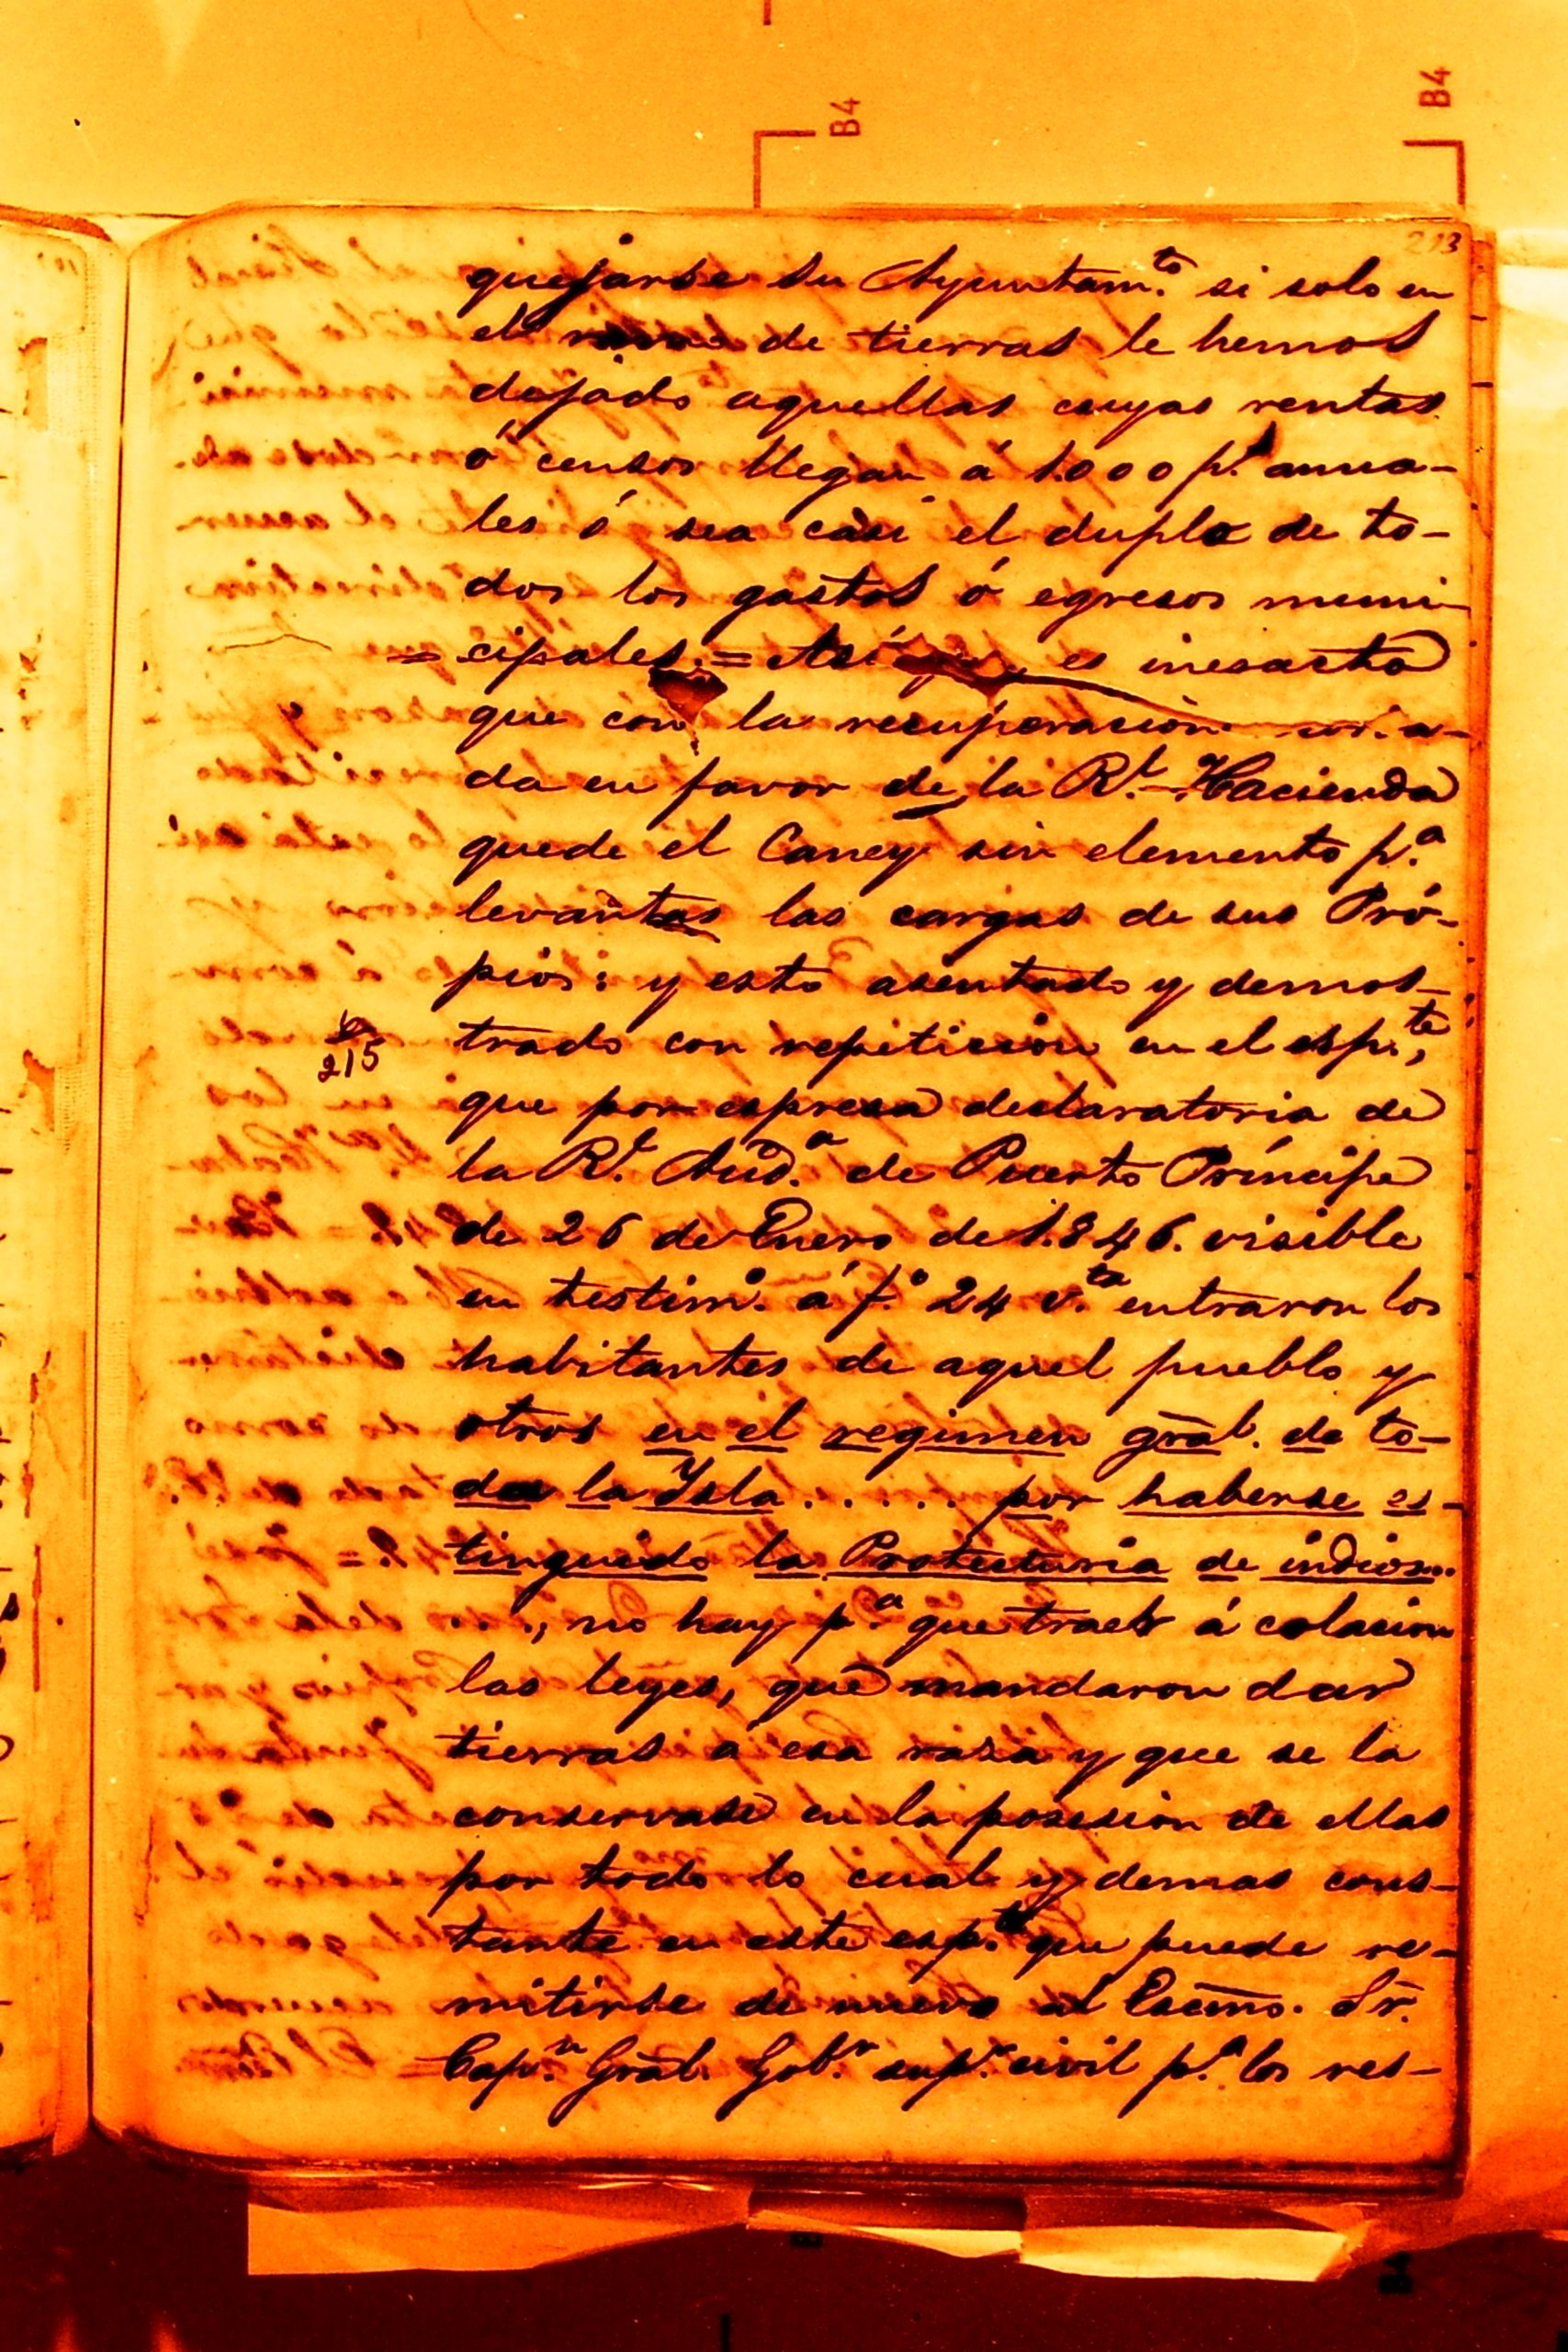 B4
B4
213
quejarse su Ayuntam.to si solo en
el ramo de tierras le hemos
dejado aquellas cuyas rentas
ó censos llegan á 1.000 p.s anua-
les ó sea casi el duplo de to-
dos los gastos ó egresos muni-
= cipales. = Así es inesacto
que con la recuperacion
da en favor de la R.l Hacienda
quede el Caney sin elemento p.a
levantar las cargas de sus Pró-
pios: y esto asentado y demos-
trado con repeticion en el esp.te,
215
que por espresa declaratoria de
la R.l Aud.a de Puerto Príncipe
de 26 de Enero de 1.846. visible
en testim.o á f.o 24 v.ta entraron los
habitantes de aquel pueblo y
otros en el regimen gral. de to-
da la Ysla . . . . . . por haberse es-
tinguido la Protecturia de indios...
.., no hay p.a que traer á colacion
las leyes, que mandaron dar
tierras á esa raza y que se la
conservase en la posesion de ellas
por todo lo cual y demas cons-
tante en este esp.te que puede re-
mitirse de nuevo al Escmo. Sr.
Cap.n Gral. Gob.r sup.r civil p.a los res-